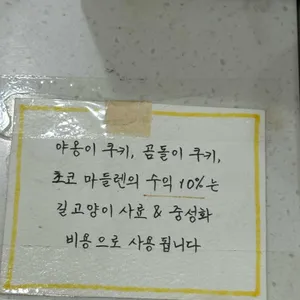 야옹이 쿠키, 곰돌이 쿠키,
초코 마들렌의 수익 10%는
길고양이 사료 & 중성화
비용으로 사용됩니다